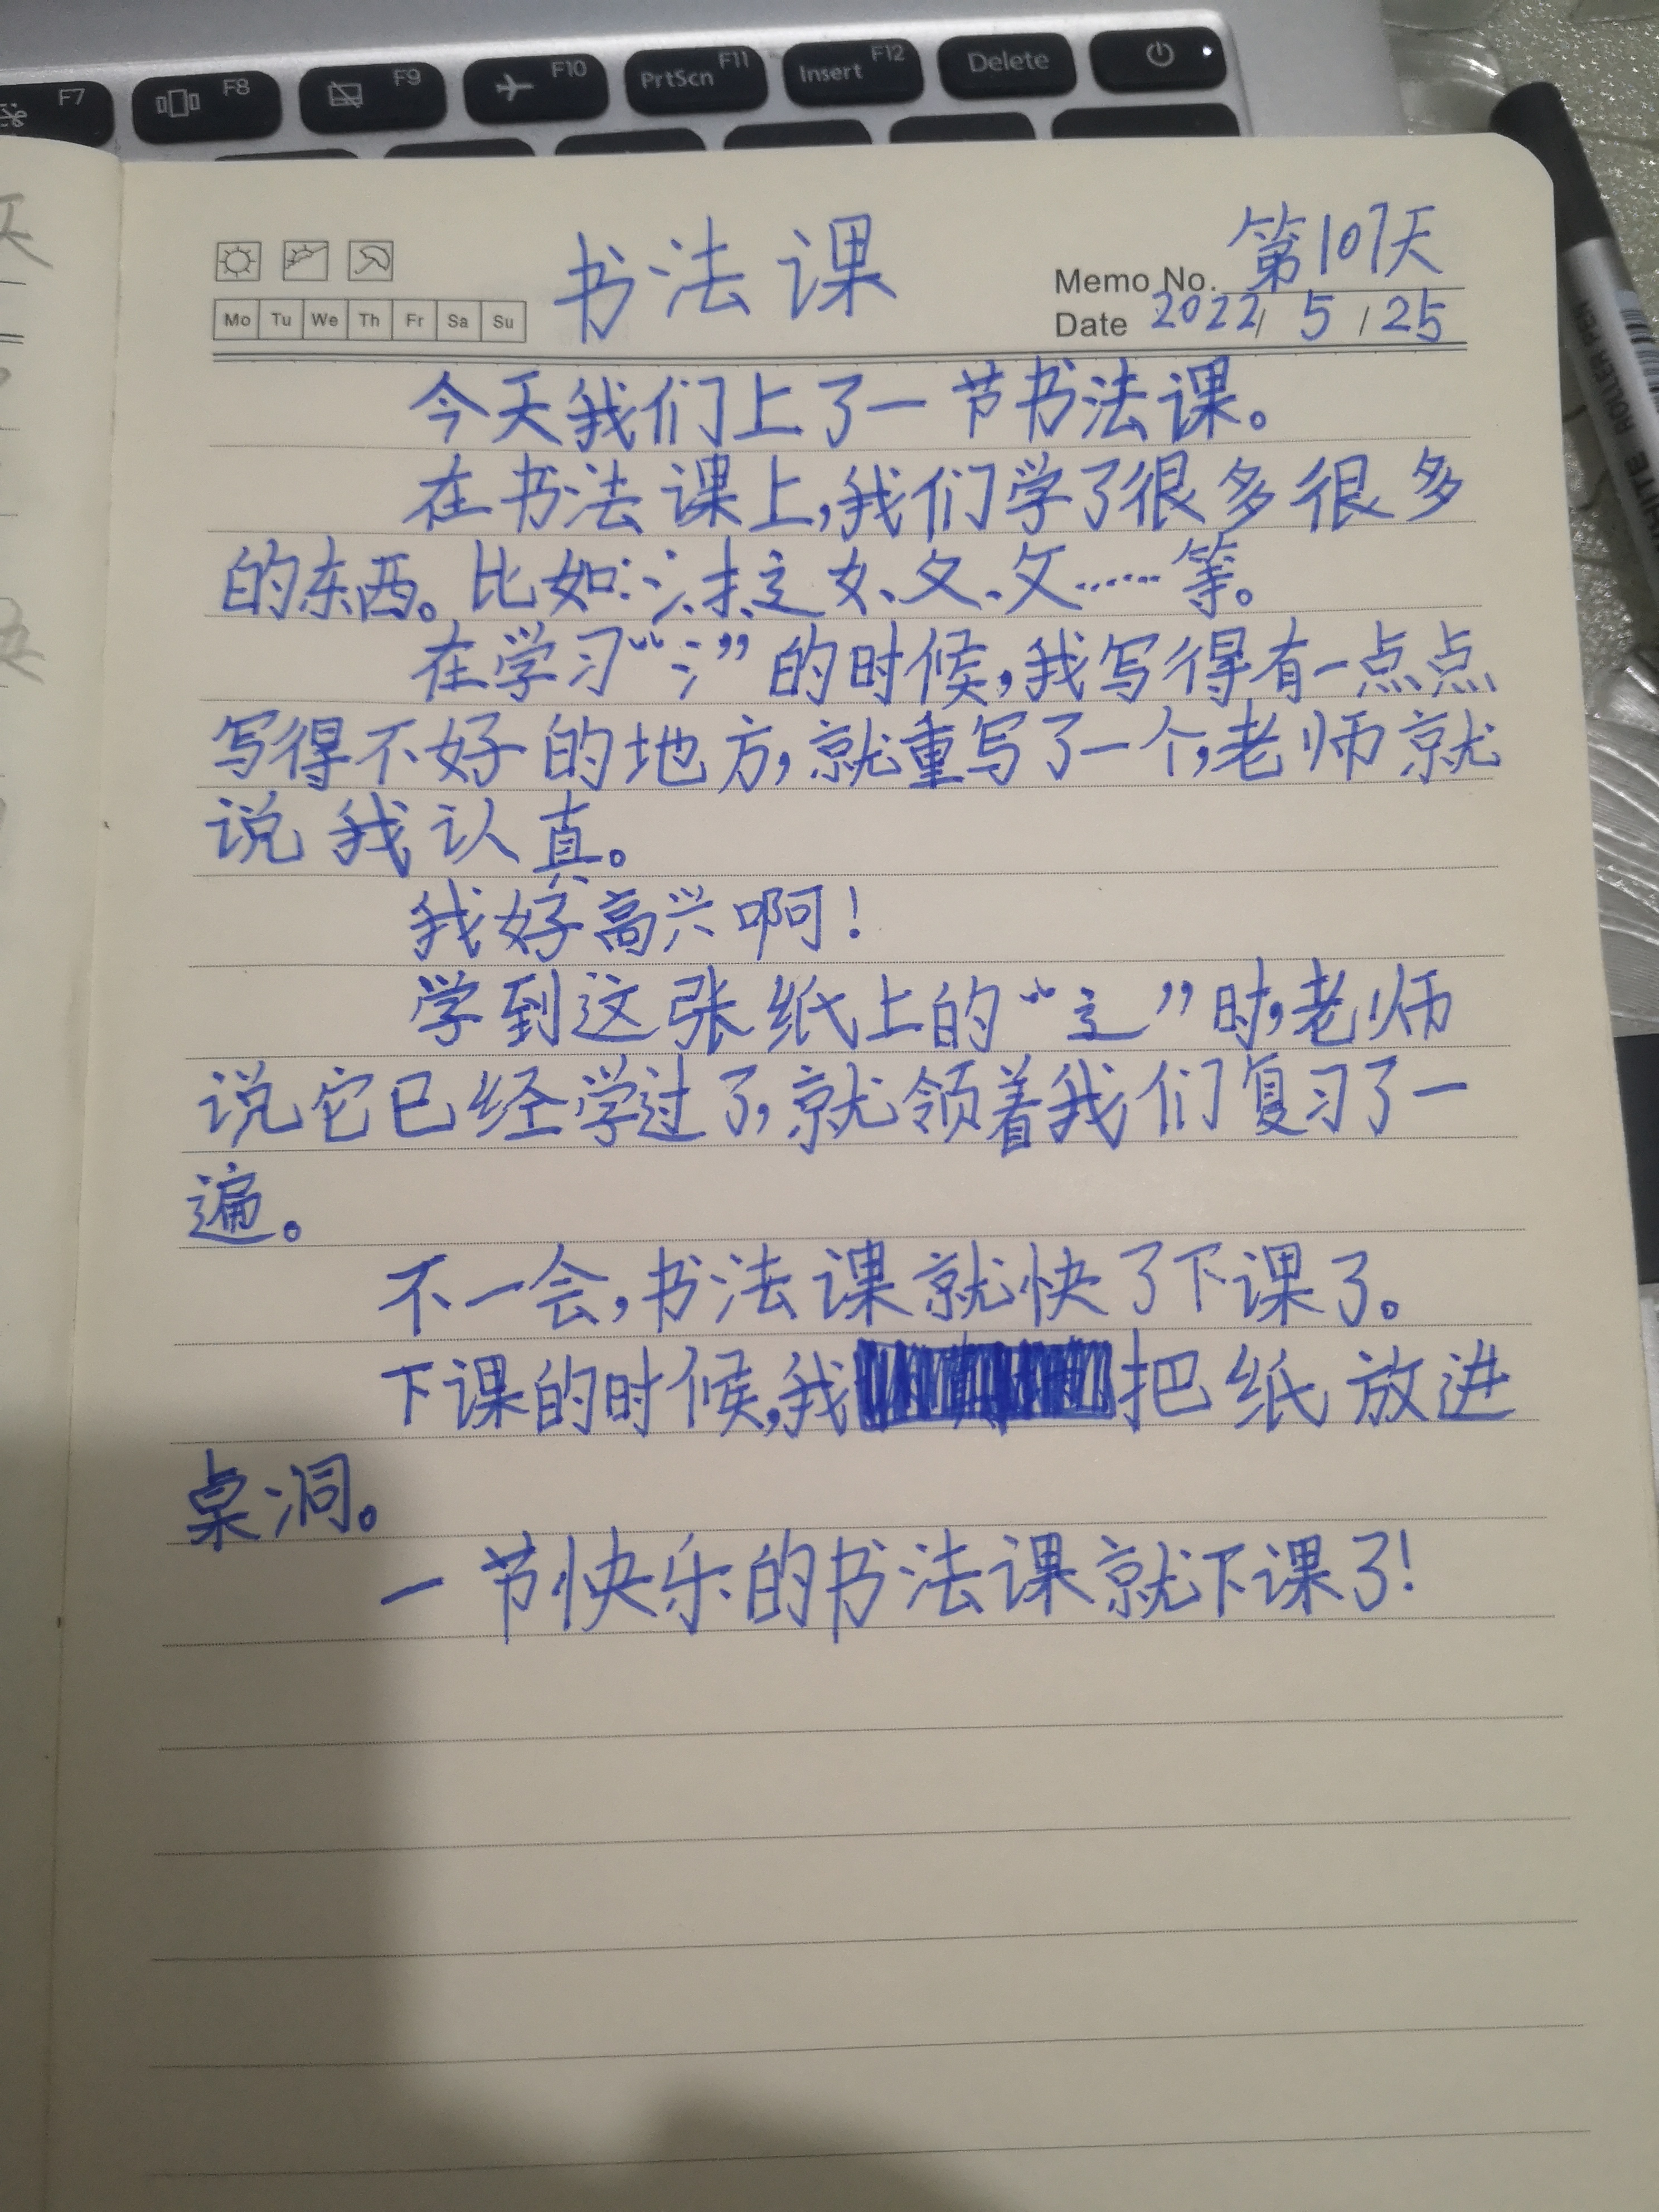 F7 F8 F9 F10 PrtScn F11 Insert F12 Delete
书法课
Memo No. 第107天
Mo Tu We Th Fr Sa Su
Date 2022/ 5 / 25
今天我们上了一节书法课。
在书法课上,我们学了很多很多
的东西。比如:氵、扌、辶、女、夂、攵……等。
在学习“氵”的时候,我写得有一点点
写得不好的地方,就重写了一个,老师就
说我认真。
我好高兴啊!
学到这张纸上的“辶”时,老师
说它已经学过了,就领着我们复习了一
遍。
不一会,书法课就快了下课了。
下课的时候,我把纸放进
桌洞。
一节快乐的书法课就下课了!
ROLLER PEN